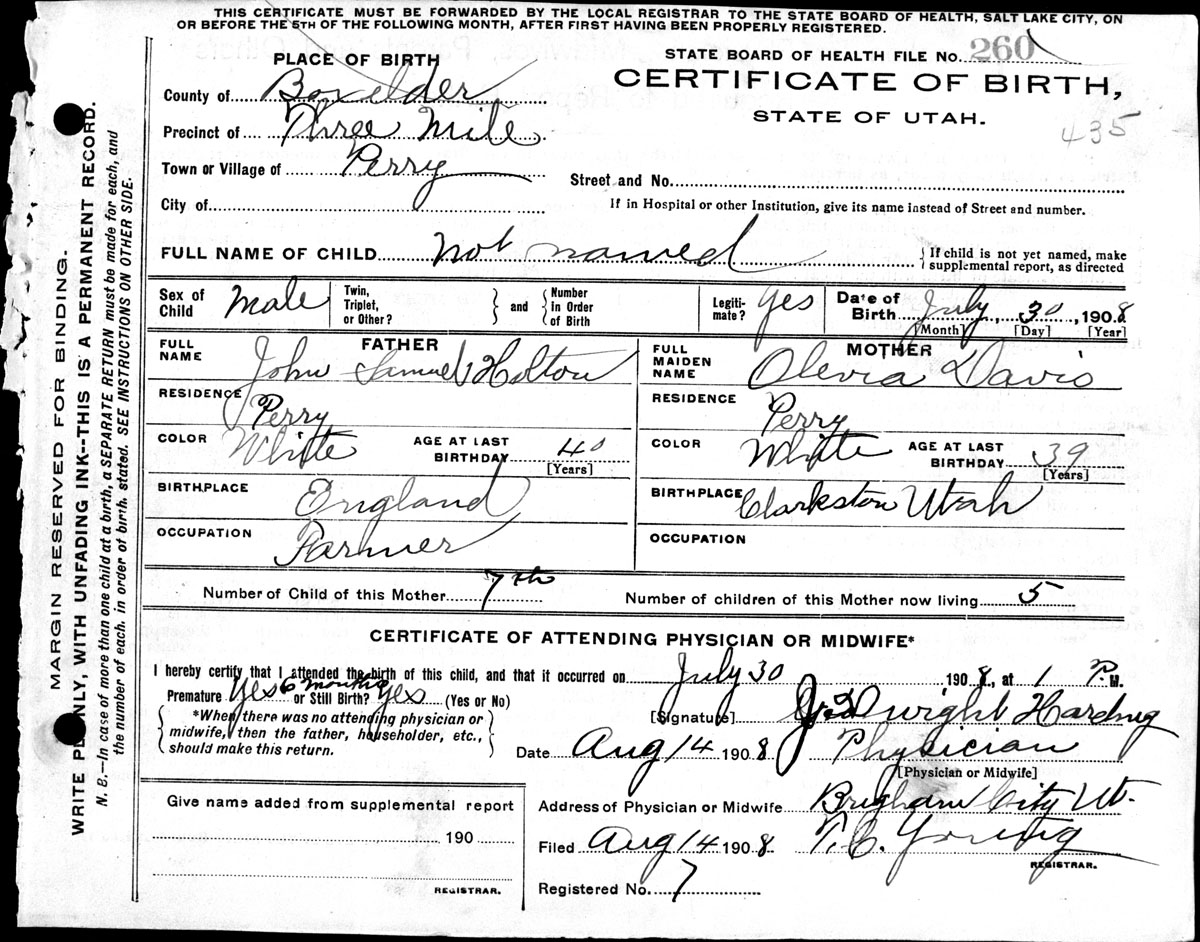 THIS CERTIFICATE MUST BE FORWARDED BY THE LOCAL REGISTRAR TO THE STATE BOARD OF HEALTH, SALT LAKE CITY, ON
OR BEFORE THE 5TH OF THE FOLLOWING MONTH, AFTER FIRST HAVING BEEN PROPERLY REGISTERED.
PLACE OF BIRTH
STATE BOARD OF HEALTH FILE NO. 260
County of Boxelder
CERTIFICATE OF BIRTH,
Precinct of Three Mile
STATE OF UTAH.
435
Town or Village of Perry
Street and No.
City of
If in Hospital or other Institution, give its name instead of Street and number.
FULL NAME OF CHILD not named
If child is not yet named, make
supplemental report, as directed
Sex of Child Male
Twin, Triplet, or Other? and Number in Order of Birth
Legiti-mate? Yes
Date of Birth July 30, 1908
[Month] [Day] [Year]
FATHER
FULL NAME John Samuel Holton
RESIDENCE Perry
COLOR White
AGE AT LAST BIRTHDAY 40
[Years]
BIRTHPLACE England
OCCUPATION Farmer
MOTHER
FULL MAIDEN NAME Olevia Davis
RESIDENCE Perry
COLOR White
AGE AT LAST BIRTHDAY 39
[Years]
BIRTHPLACE Clarkston Utah
OCCUPATION
Number of Child of this Mother 7th
Number of children of this Mother now living 5
CERTIFICATE OF ATTENDING PHYSICIAN OR MIDWIFE*
I hereby certify that I attended the birth of this child, and that it occurred on July 30, 1908, at 1 P.M.
Premature Yes 6 months or Still Birth? Yes (Yes or No)
*When there was no attending physician or
midwife, then the father, householder, etc.,
should make this return.
[Signature] Dwight Harding
Date Aug 14 1908 Physician
[Physician or Midwife]
Address of Physician or Midwife Brigham City Ut.
Filed Aug 14 1908 T. C. Young
REGISTRAR.
Registered No. 7
Give name added from supplemental report
190
REGISTRAR.
MARGIN RESERVED FOR BINDING.
WRITE PLAINLY, WITH UNFADING INK--THIS IS A PERMANENT RECORD.
N. B.—In case of more than one child at a birth, a SEPARATE RETURN must be made for each, and
the number of each, in order of birth, stated. SEE INSTRUCTIONS ON OTHER SIDE.